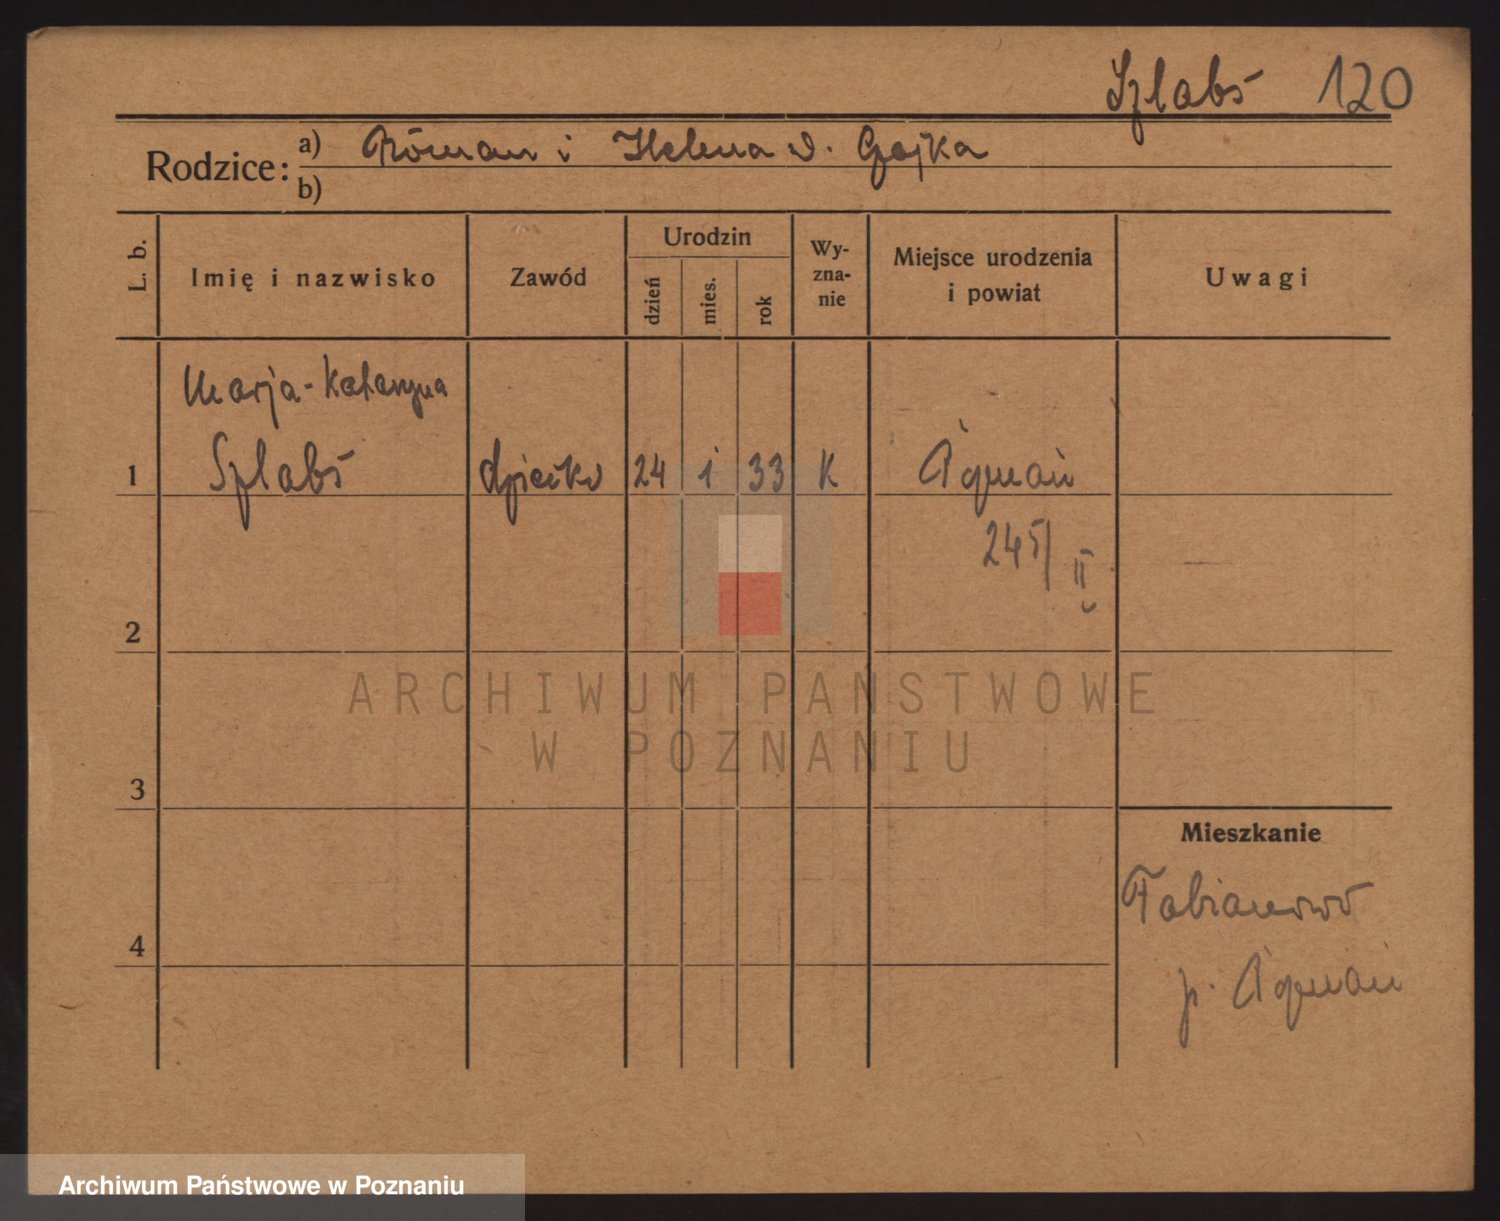 Szlabs 120
Rodzice: a) Roman i Helena d. Gojka
b)
L. b.
Imię i nazwisko
Zawód
Urodzin
dzień
mies.
rok
Wy-
zna-
nie
Miejsce urodzenia
i powiat
Uwagi
Marja-Katarzyna
1 Szlabs dziecko 24 1 33 K Poznań
245/II
2
3
4
Mieszkanie
Fabianowo
p. Poznań
ARCHIWUM PAŃSTWOWE
W POZNANIU
Archiwum Państwowe w Poznaniu